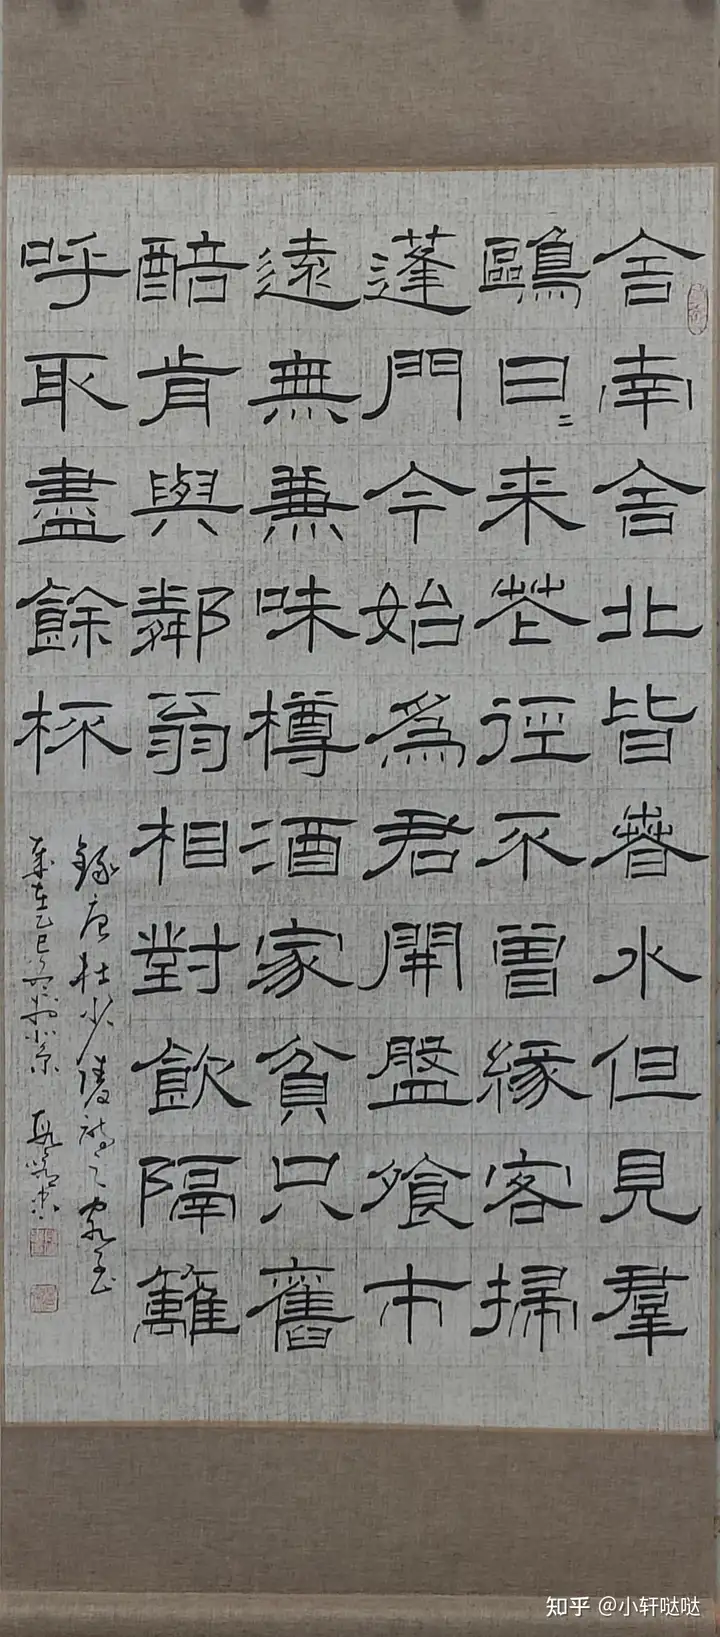 舍南舍北皆春水但見羣
鷗日〻来花徑不曾緣客掃
蓬門今始爲君開盤飱市
遠無兼味樽酒家貧只舊
醅肯與鄰翁相對飲隔籬
呼取盡餘杯
錄唐杜少陵詩之客至
歲在乙巳
知乎 @小轩哒哒